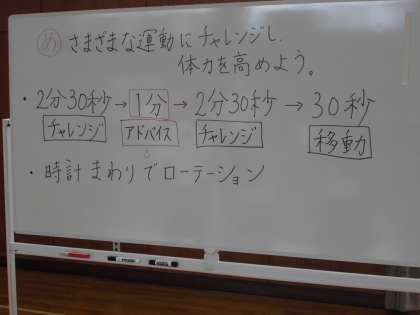 め さまざまな運動にチャレンジし、
体力を高めよう。
・2分30秒→1分→2分30秒→30秒
チャレンジ アドバイス チャレンジ 移動
・時計まわりでローテーション